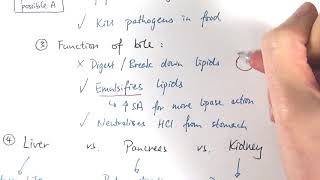 possible A
✓ Kill pathogens in food
③ Function of bile :
× Digest / Break down lipids
✓ Emulsifies lipids
↳ ↑ SA for more lipase action
✓ Neutralises HCl from stomach
④ Liver vs. Pancreas vs. Kidney